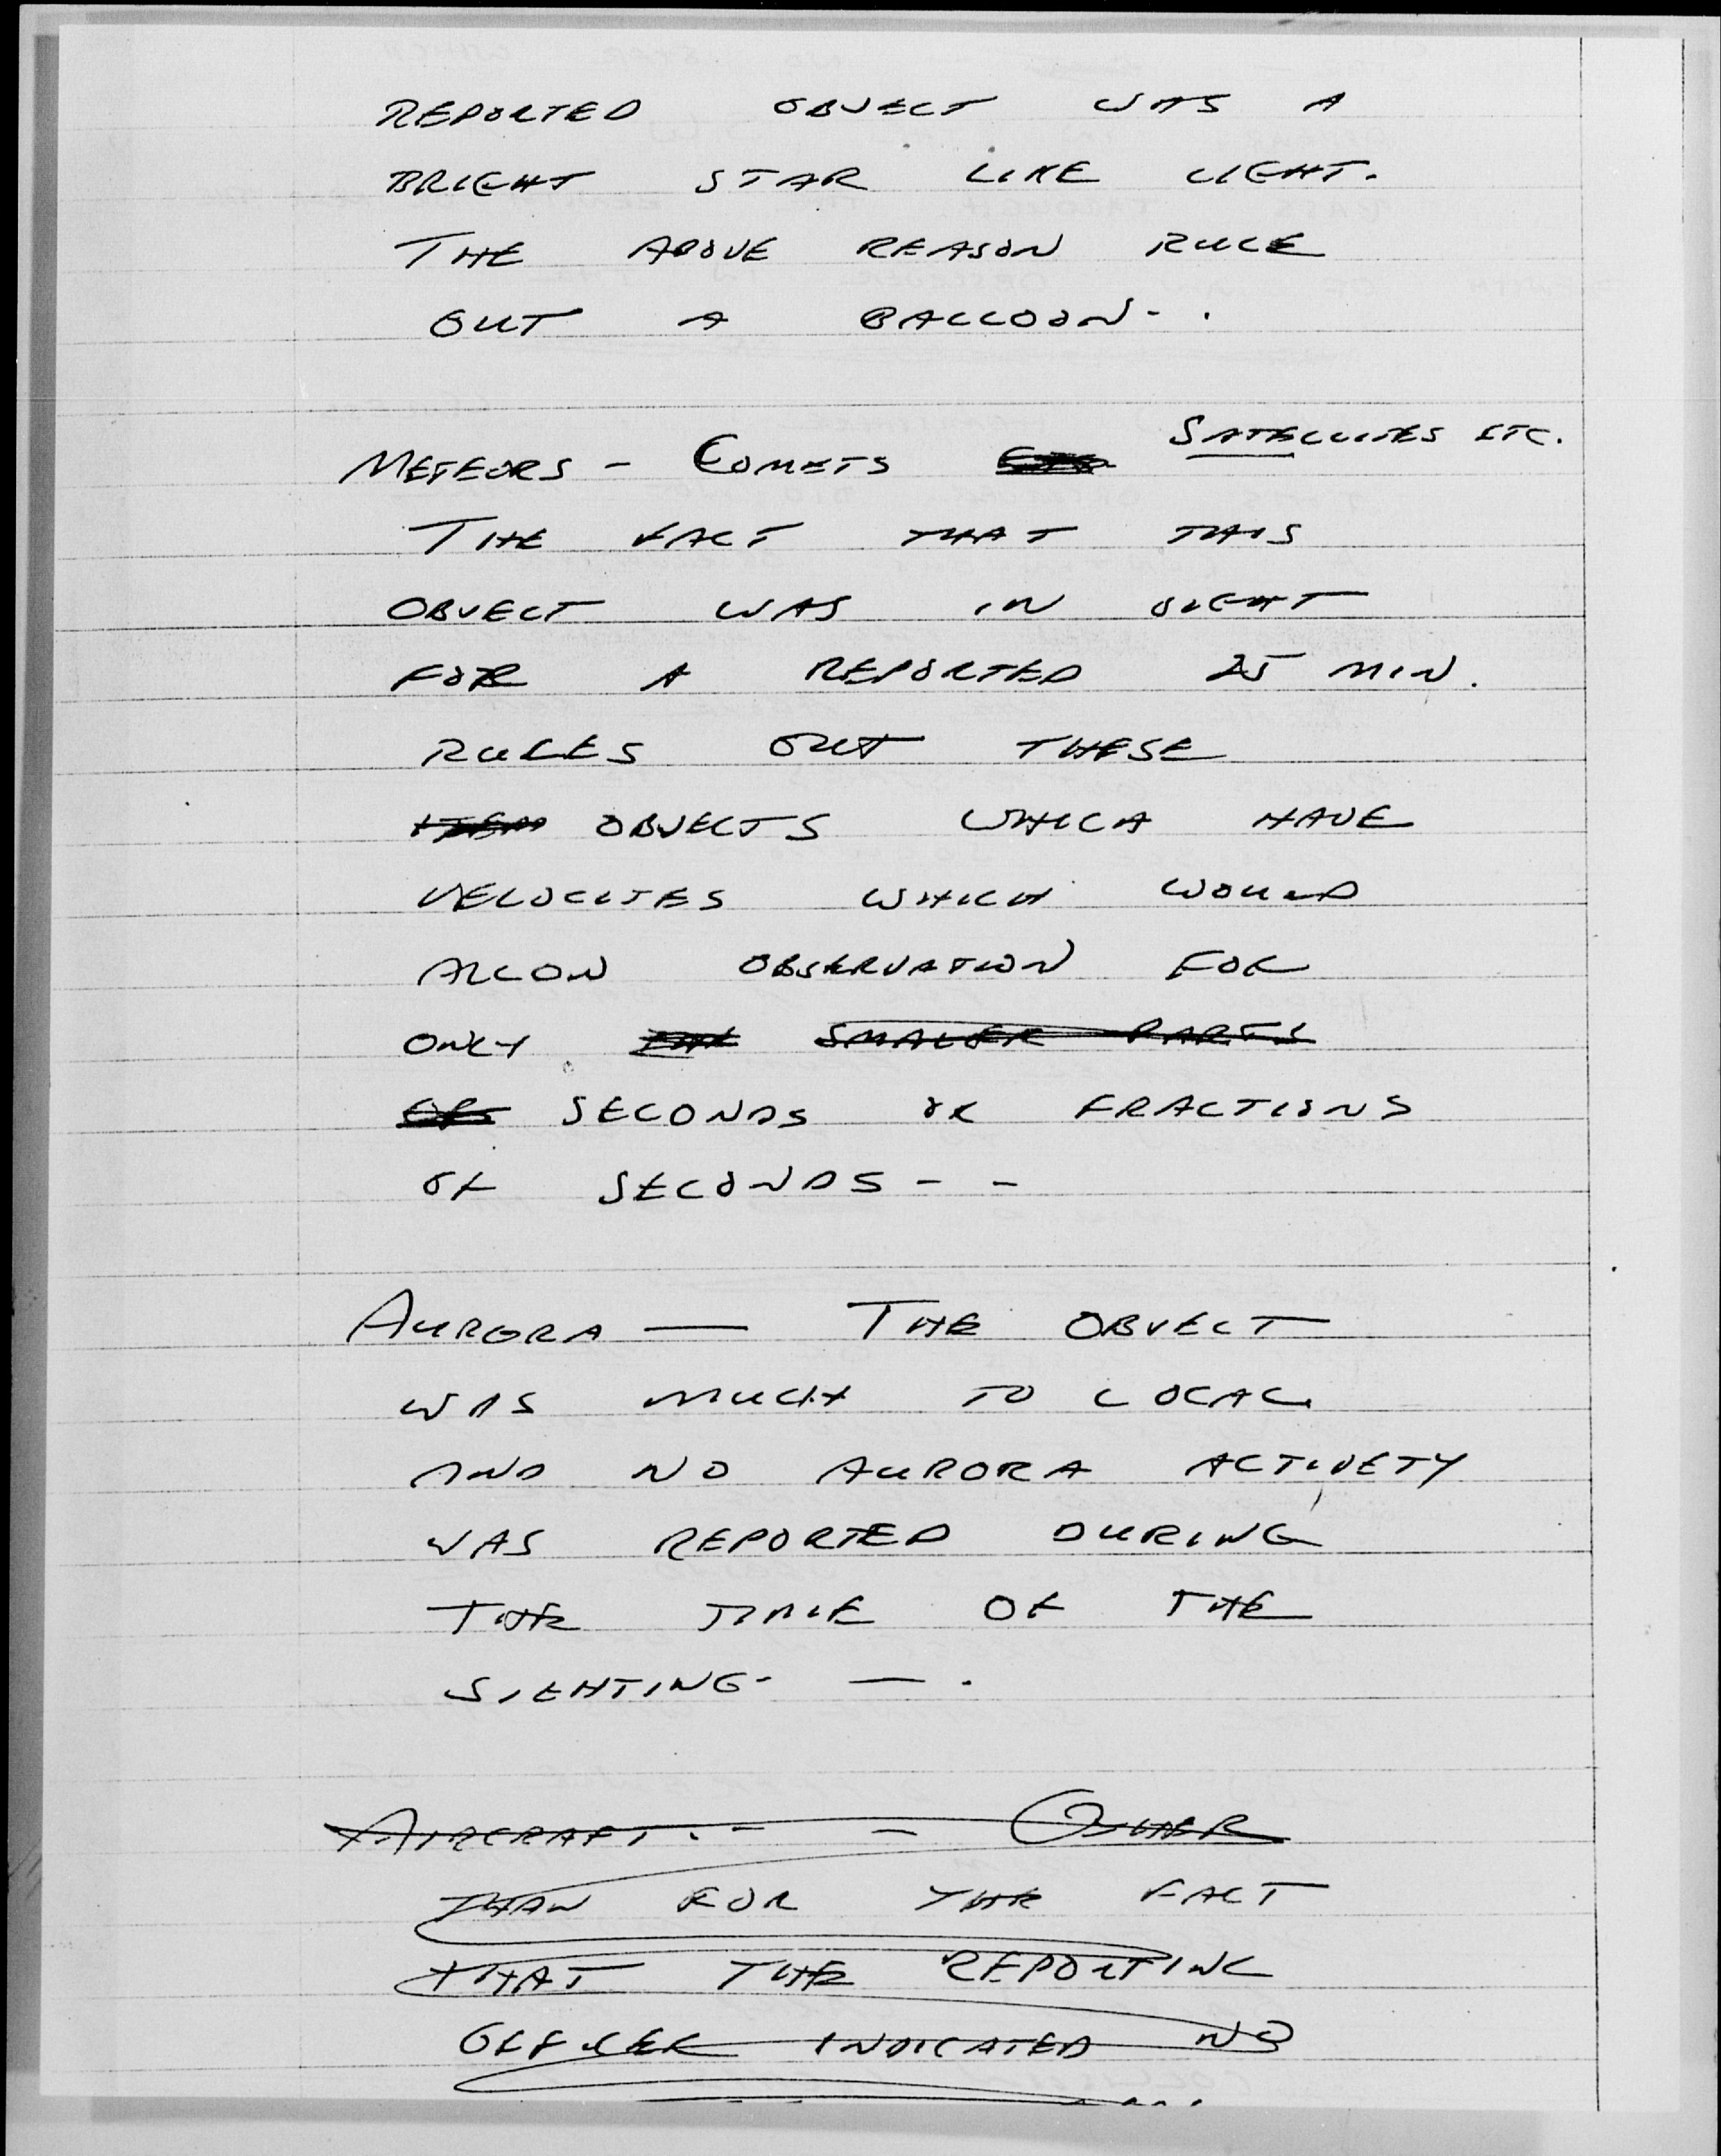 REPORTED OBJECT WAS A
BRIGHT STAR LIKE LIGHT.
THE ABOVE REASON RULE
OUT A BALLOON - .
SATELLITES ETC.
METEORS - COMETS
THE FACT THAT THIS
OBJECT WAS IN SIGHT
FOR A REPORTED 25 MIN.
RULES OUT THESE
ITEM OBJECTS WHICH HAVE
VELOCITES WHICH WOULD
ALLOW OBSERVATION FOR
ONLY SMALLER PARTS
OF SECONDS OR FRACTIONS
OF SECONDS - -
AURORA — THE OBJECT
WAS MUCH TO LOCAL
AND NO AURORA ACTIVETY
WAS REPORTED DURING
THE TIME OF THE
SIGHTING - — .
AIRCRAFT. - - OTHER
THAN FOR THE FACT
THAT THE REPORTING
OFFICER INDICATED NO